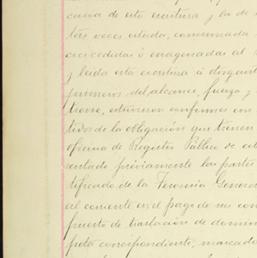 cuna de esta escritura y la de
tas veces citada, consumada
concedidas ó enagenadas al
y leida esta escritura á otorgant
primeros del alcance, fuerza y
trono, estuvieron conformes en
tidos de la obligación que tienen
oficina de Registro Público de est
entado préviamente las partes
tificado de la Tesorería General
al corriente en el pago de sus con
puesto de traslación de domin
puto correspondiente, marcado